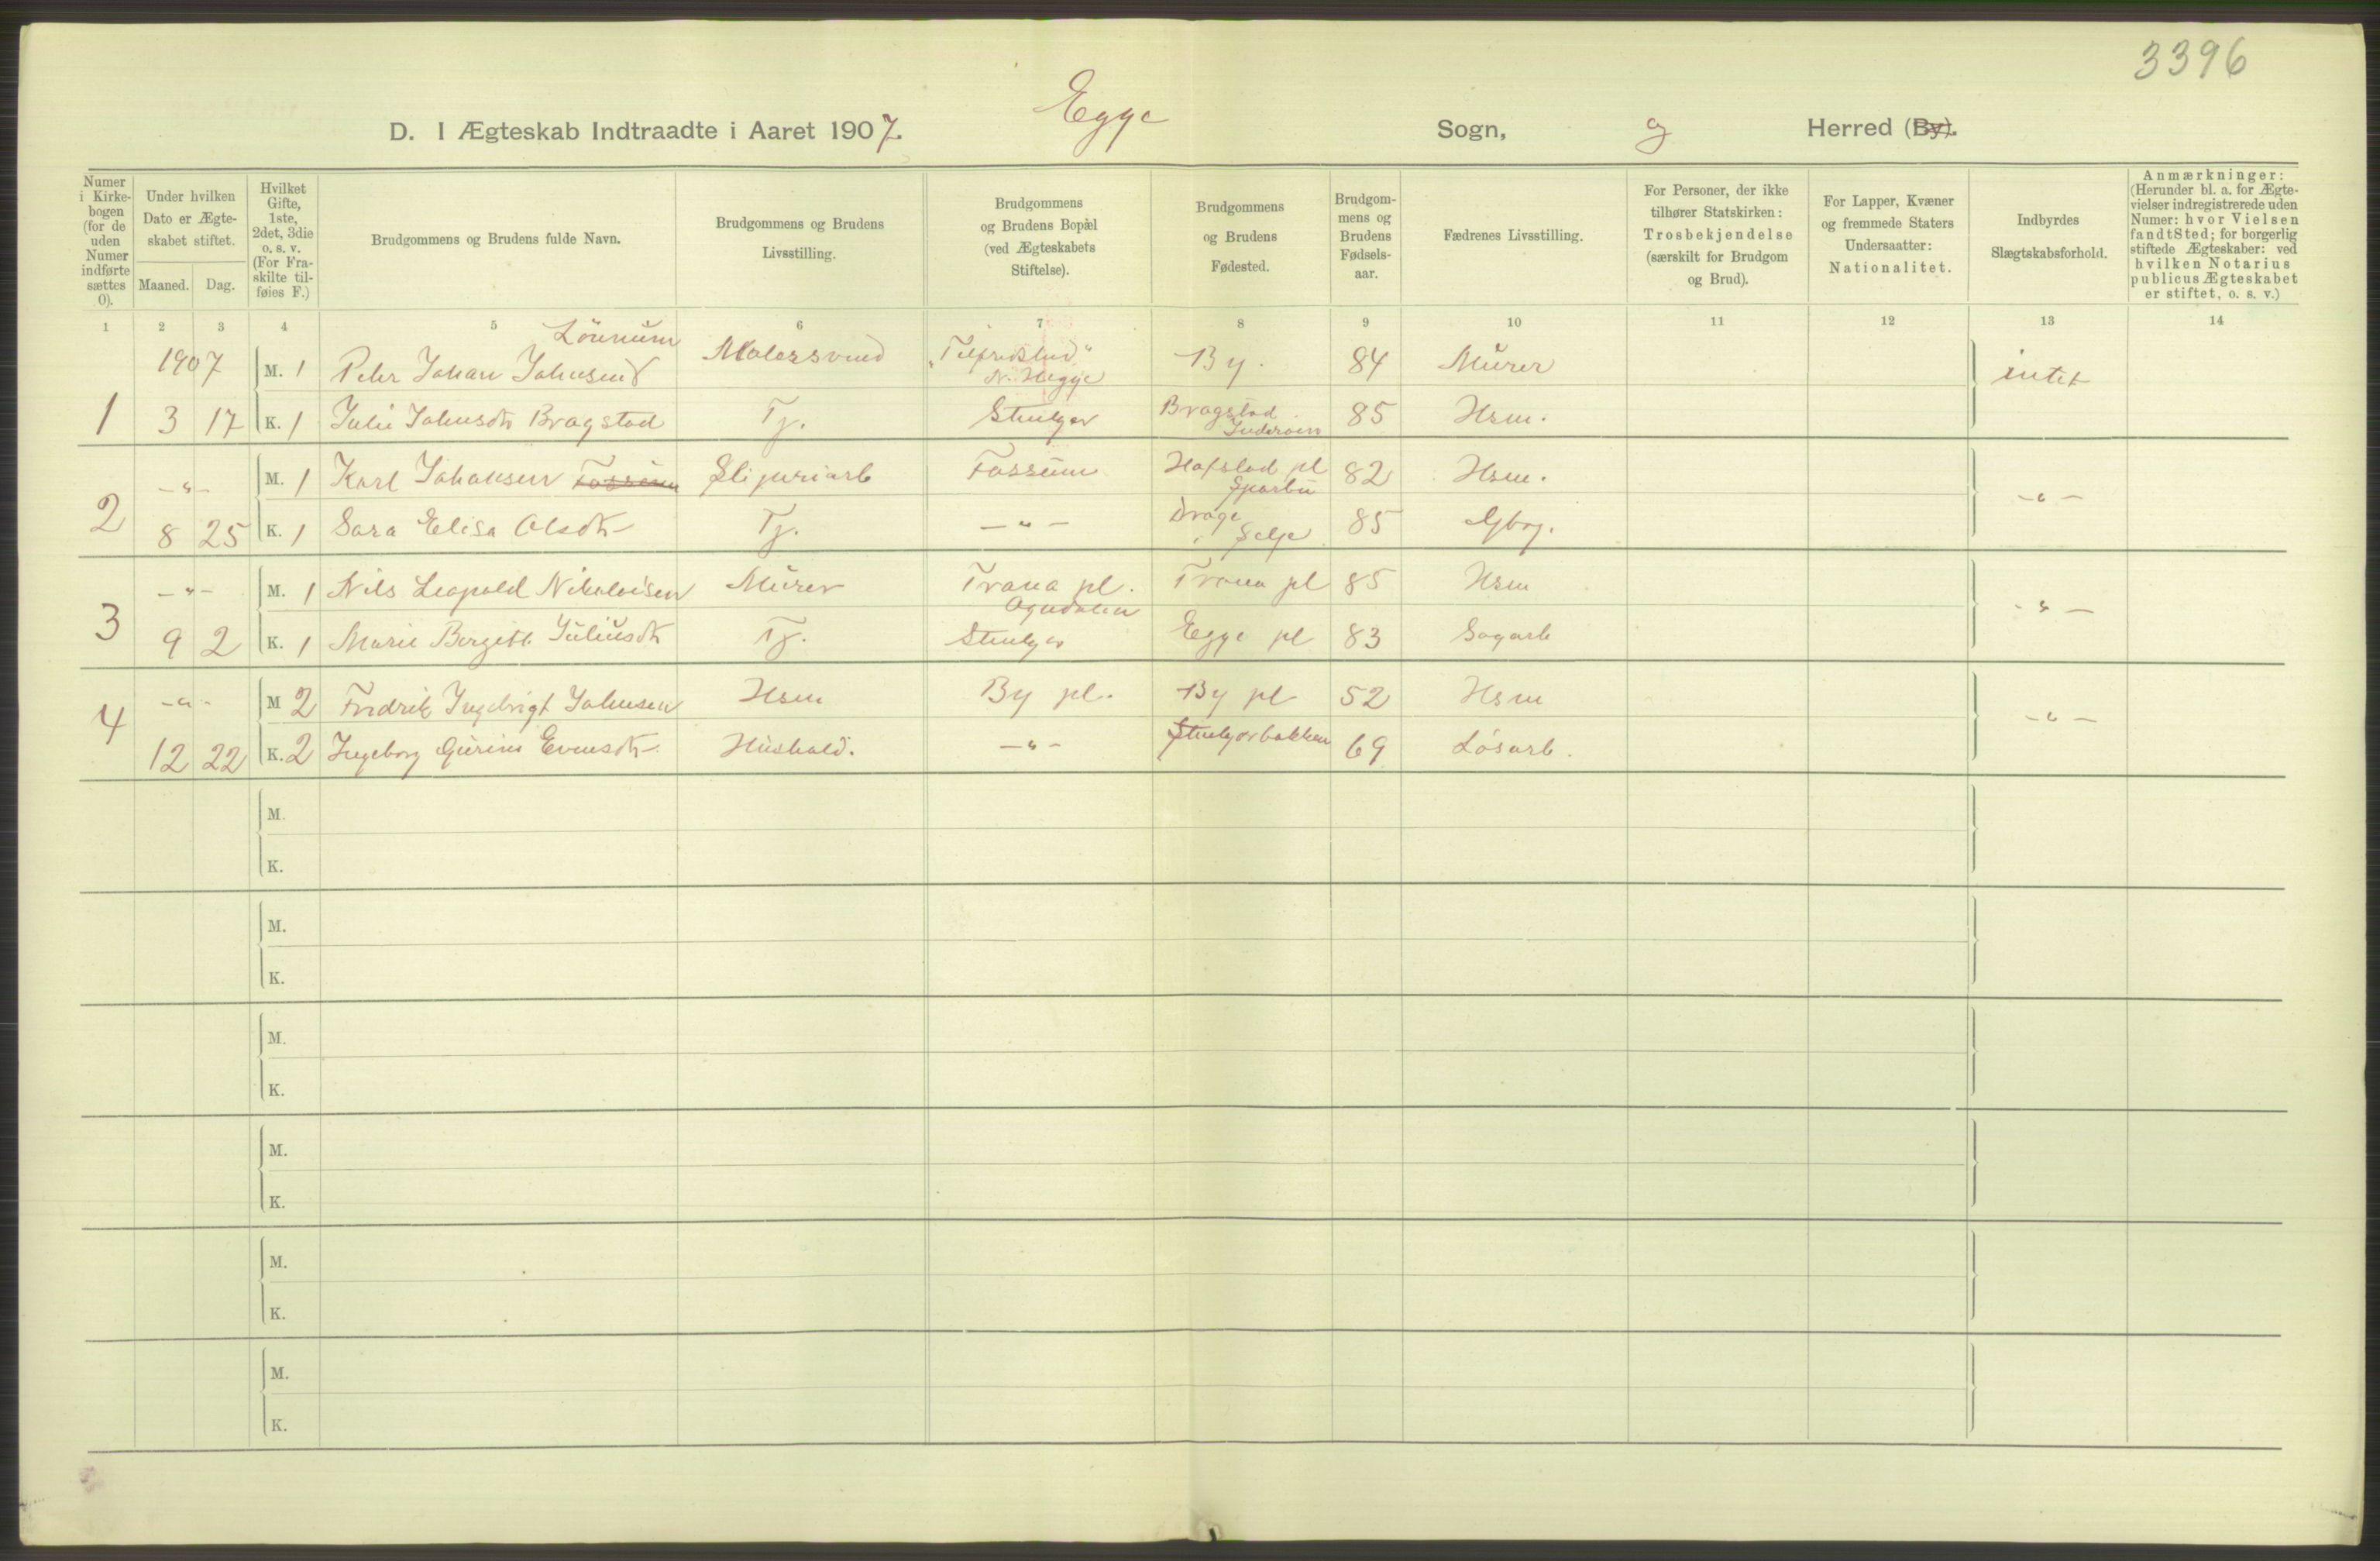 3396
D. I Ægteskab Indtraadte i Aaret 1907. Egge Sogn, og Herred (By).
Numer i Kirkebogen (for de uden Numer indførte sættes 0).
Under hvilken Dato er Ægteskabet stiftet.
Maaned. Dag.
Hvilket Gifte, 1ste, 2det, 3die o. s. v. (For Fraskilte tilføies F.)
Brudgommens og Brudens fulde Navn.
Brudgommens og Brudens Livsstilling.
Brudgommens og Brudens Bopæl (ved Ægteskabets Stiftelse).
Brudgommens og Brudens Fødested.
Brudgommens og Brudens Fødselsaar.
Fædrenes Livsstilling.
For Personer, der ikke tilhører Statskirken: Trosbekjendelse (særskilt for Brudgom og Brud).
For Lapper, Kvæner og fremmede Staters Undersaatter: Nationalitet.
Indbyrdes Slægtskabsforhold.
Anmærkninger: (Herunder bl. a. for Ægtevielser indregistrerede uden Numer: hvor Vielsen fandt Sted; for borgerlig stiftede Ægteskaber: ved hvilken Notarius publicus Ægteskabet er stiftet, o. s. v.)
1 2 3 4 5 6 7 8 9 10 11 12 13 14
1907 M. 1 Peter Johan Johnsen Lönnum Malersvend N. Hegge By. 84 Murer intet
1 3 17 K. 1 Julie Johnsdtr Bragstad Tj. Stenkjer Bragstad Inderøen 85 Hsm.
-"- M. 1 Karl Johansen Fossum Sliperiarb Fossum Hofstad pl Sparbu 82 Hsm. -"-
2 8 25 K. 1 Sara Elisa Olsdtr Tj. -"- Drage Selje 85 Gbrg.
-"- M. 1 Nils Leopold Nikolaisen Murer Trana pl. Trana pl 85 Hsm -"-
3 9 2 K. 1 Marie Bergitte Juliusdtr Tj. Ogndalen Stenkjer Egge pl 83 Sagarb
-"- M 2 Fredrik Ingebrigt Johnsen Hsm By pl. By pl 52 Hsm -"-
4 12 22 K. 2 Ingeborg Gurine Evensdtr Hushold. -"- Stenkjerbakken 69 Løsarb.
M.
K.
M.
K.
M.
K.
M.
K.
M.
K.
M.
K.